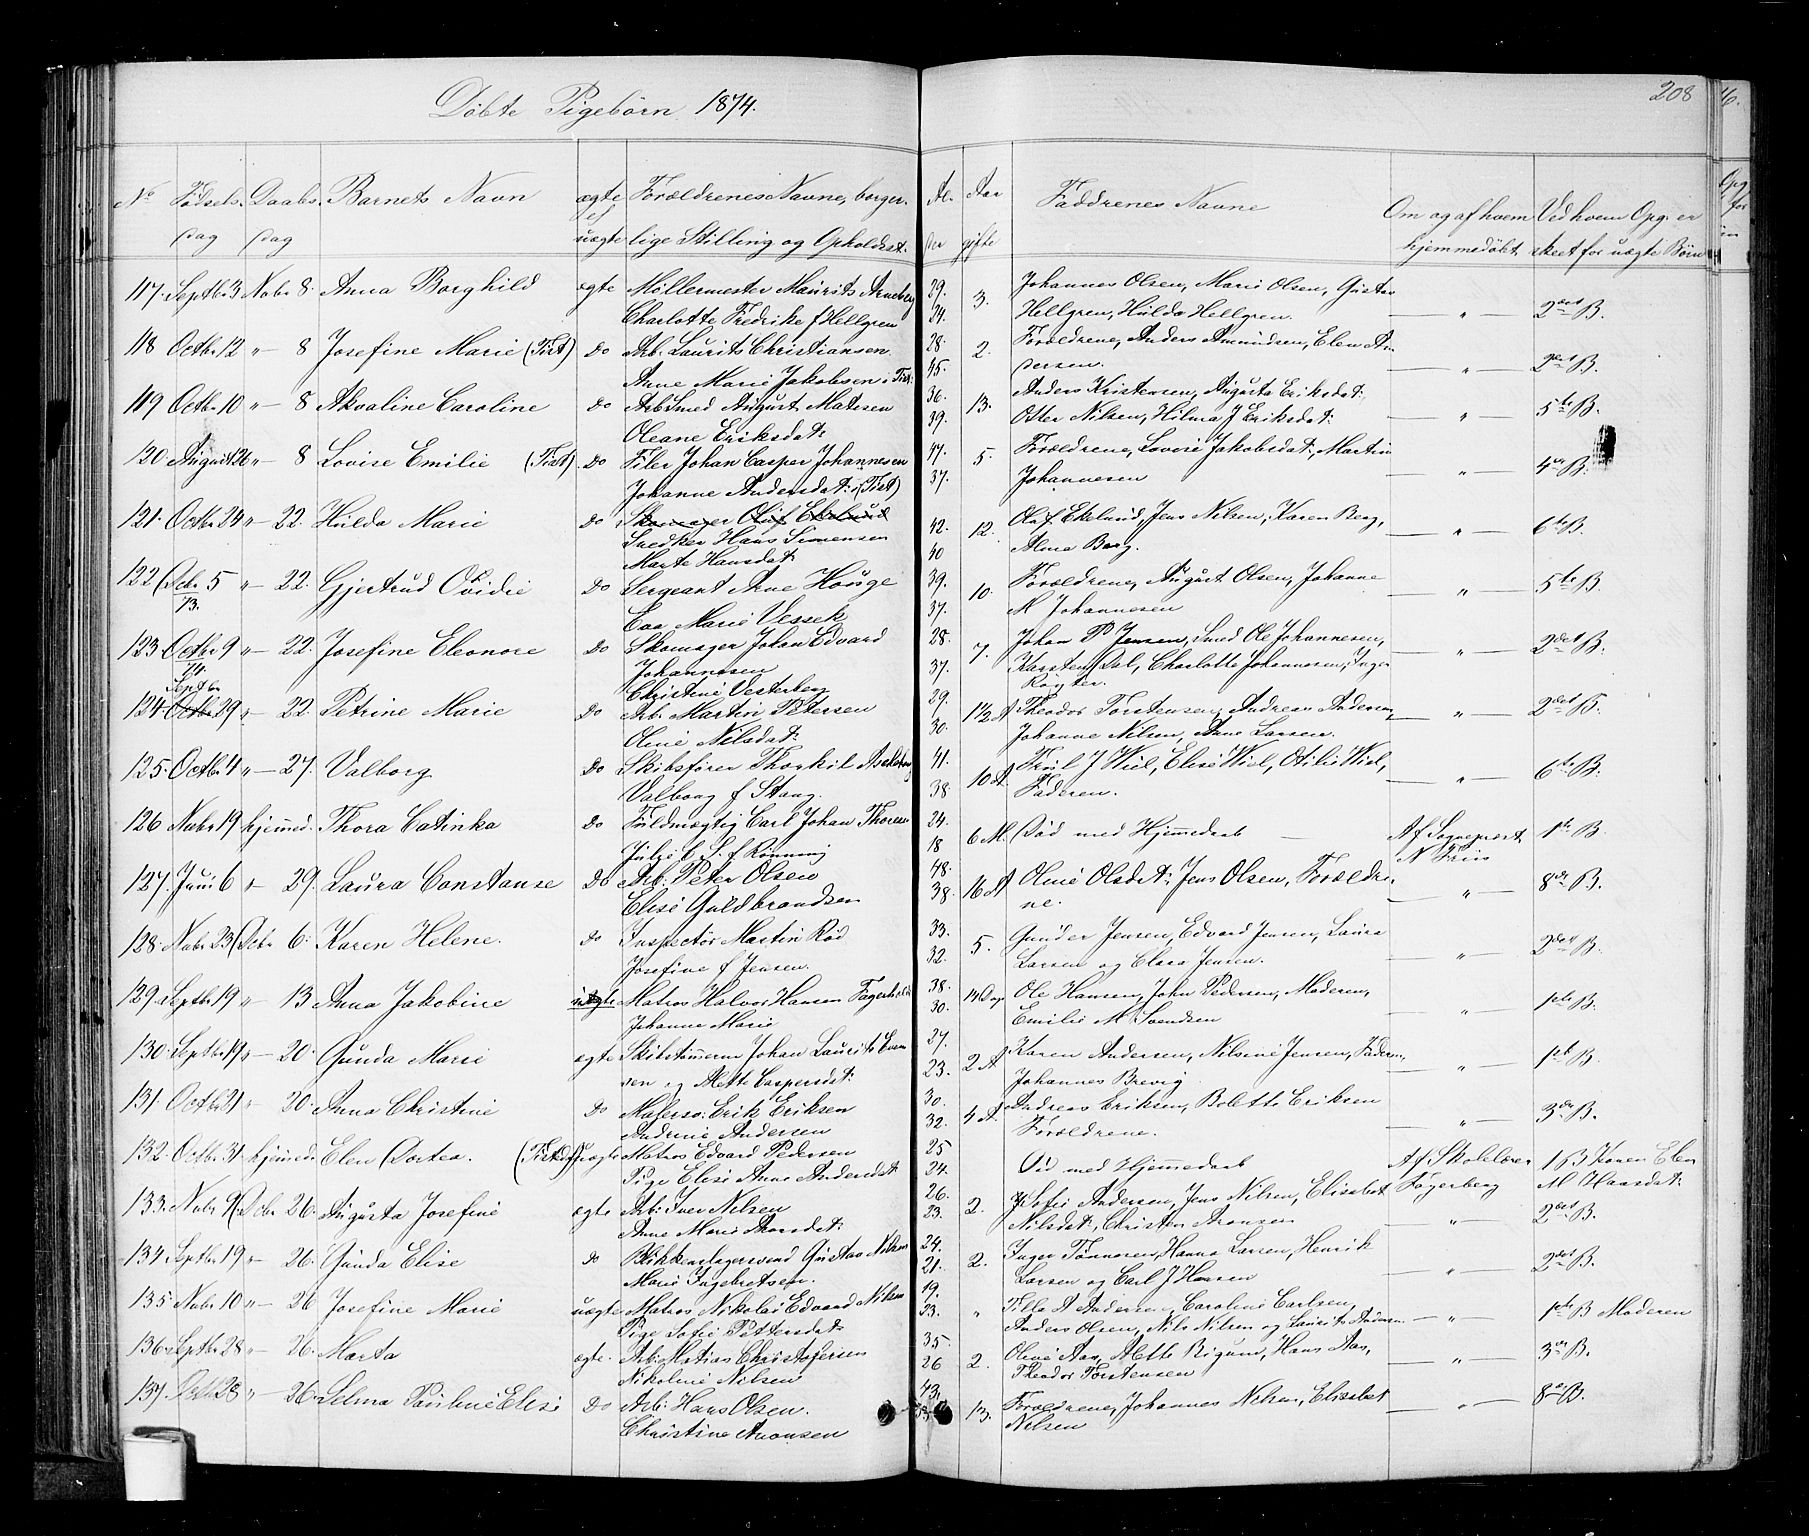 Döbte Pigebörn 1874.
208
No Födsels dag Daabs dag Barnets Navn ægte el uægte Forældrenes Navne, borgerlige Stilling og Opholdsst. Alder Aar gifte Faddrenes Navne Om og af hvem hjemmedöbt Ved hvem Opg. er skeet for uægte Börn
117. Septbr 3 Novbr 8. Anna Borghild ægte Möllermester Maurits Arneberg 29. 3. Johannes Olsen, Marie Olsen, Gustav — " — 2det B.
Charlotte Fredrike f Hellgren 24. Hellgren, Hulda Hellgren.
118 Octbr 12 " 8 Josefine Marie (Tist) Do Arb. Laurits Christiansen. 28. 2. Forældrene, Anders Amundsen, Elen An — " — 2det B.
Anne Marie Jakobsen i Tist. 45. dersen.
119 Octbr 10 " — 8 Akvaline Caroline Do Arb Smed August Matesen 36. 13. Anders Kristensen, Augusta Eriksdat: — " — 5te B.
Oleane Eriksdat: 39. Oster Nilsen, Hilma J Eriksdat:
120. August 26 " — 8 Lovise Emilie (Tist) Do Filer Johan Casper Johannesen 47. 5. Forældrene, Lovise Jakobsdat:, Martin — " — 4de B.
Johanne Andersdat: (Tist) 37. Johannesen
121. Octbr 24 " — 22. Hulda Marie Do Skomager Oluf Ekelund 42. 12. Oluf Ekelund, Jens Nilsen, Karen Berg, — " — 6te B.
Snedker Hans Simensen 40 Alma Berg.
Marte Hansdat:
122 Decbr 5 " — 22. Gjertrud Ovidie Do Sergeant Arne Houge 39. 10. Forældrene, August Olsen, Johanne — " — 5te B.
73. Marie Vessek 37. M Johannesen
123 Octbr 9 " — 22. Josefine Eleonore Do Skomager Johan Edvard 28. 7. Johan P Jensen, Smed Ole Johannesen, — " — 2det B.
74. Johannesen 37. Karsten Dal, Charlotte Johannesen, Inger
Christine Vesterberg
Septbr
124 Octbr 29 " — 22. Petrine Marie Do Arb. Martin Petersen 29. 1 1/2 A Theodor Torstensen, Andreas Andersen, — " — 2det B.
Oline Nilsdat: 30. Johanne Nilsen, Arne Larsen.
125. Octbr 4 " — 27. Valborg Do Skibsförer Thorkil 41. 10 A Troil J Wiel, Elise Wiel, Otilie Wiel, — " — 6te B.
Valborg f Stang. 38 Faderen.
126 Novbr 19 hjemmed. Thora Catinka Do Fuldmægtig Carl Johan Thoresen 24. 6 M. Död med Hjemmedaab — Af Sognepræst 1te B
Julie C. S. f Rönning 18 N Friis
127. Juni 6 " — 29. Laura Constanse Do Arb. Peter Olsen 48. 16 A Oline Olsdat:, Jens Olsen, Forældre — " — 8de B.
Elise Guldbrandsen 38. ne.
128. Novbr 23 Decbr 6. Karen Helene. Do Inspectör Martin Röd 33. 5. Gunder Jensen, Edvard Jensen, Laura — " — 2det B.
Josefine f Jensen. 32. Larsen og Clara Jensen.
129 Septbr 19 " — 13 Anna Jakobine uægte Matros Halvor Hansen 38. 14 Dage Ole Hansen, John Pedersen, Moderen, — " — 1ste B.
Johanne Marie 30. Emilie M Svendsen
130. Septbr 19 " — 20. Gunda Marie ægte Skibstimerm Johan Laurits Even 27. 2 A Karen Andersen, Nilsine Jensen, Faderen, — " — 1ste B.
sen og Mette Caspersdat: 23. Johannes Brevig.
131. Octbr 21 " — 20. Anna Christine Do Malersv: Erik Eriksen 30. 4 A. Andreas Eriksen, Bolette Eriksen — " — 3die B.
Andrine Andersen 32. Forældrene.
132. Octbr 31 hjemmed. Elen Dortea. uægte Matros Edvard Pedersen 25 Död med Hjemmedaab Af Skolelærer 1 B Konen Elen
Pige Elise Anne Andersdat 24. Fagerberg M Haasdat:
133. Novbr 9 Decbr 26. Augusta Josefine ægte Arb: Iver Nilsen 26. 2. Sofie Andersen, Jens Nilsen, Elisabet " — 2det B.
Anne Marie Thorsdat: 23. Nilsdat:, Christen Aronsen
134. Septbr 19 " — 26. Gunda Elise Do Blikkenslagersvend Gustav Nilsen 24. 2. Inger Tönnesen, Hanna Larsen, Henrik " — 2det B.
Marie Ingebretsen. 21. Larsen og Carl J Hansen
135. Novbr 10 " — 26 Josefine Marie uægte Matros Nikolai Edvard Nilsen 19. " Tilla A Andersen, Caroline Carlsen, 1ste B Moderen
Pige Sofie Pettersdat: 23. Anders Olsen, Nils Nilsen og Laurits Andersen — " —
136. Septbr 28 " — 26. Marta ægte. Arb: Matias Christofersen 35. 2. Oline Aas, Mette Bigum, Hans Aas, — " — 3die B.
Nikoline Nilsen 26 Theodor Torstensen
137. Octbr 28 " — 26. Selma Pauline Elise Do Arb: Hans Olsen. 43. 13. Forældrene, Johannes Nilsen, Elisabet — " — 8de B.
Christine Aronsen Nilsen